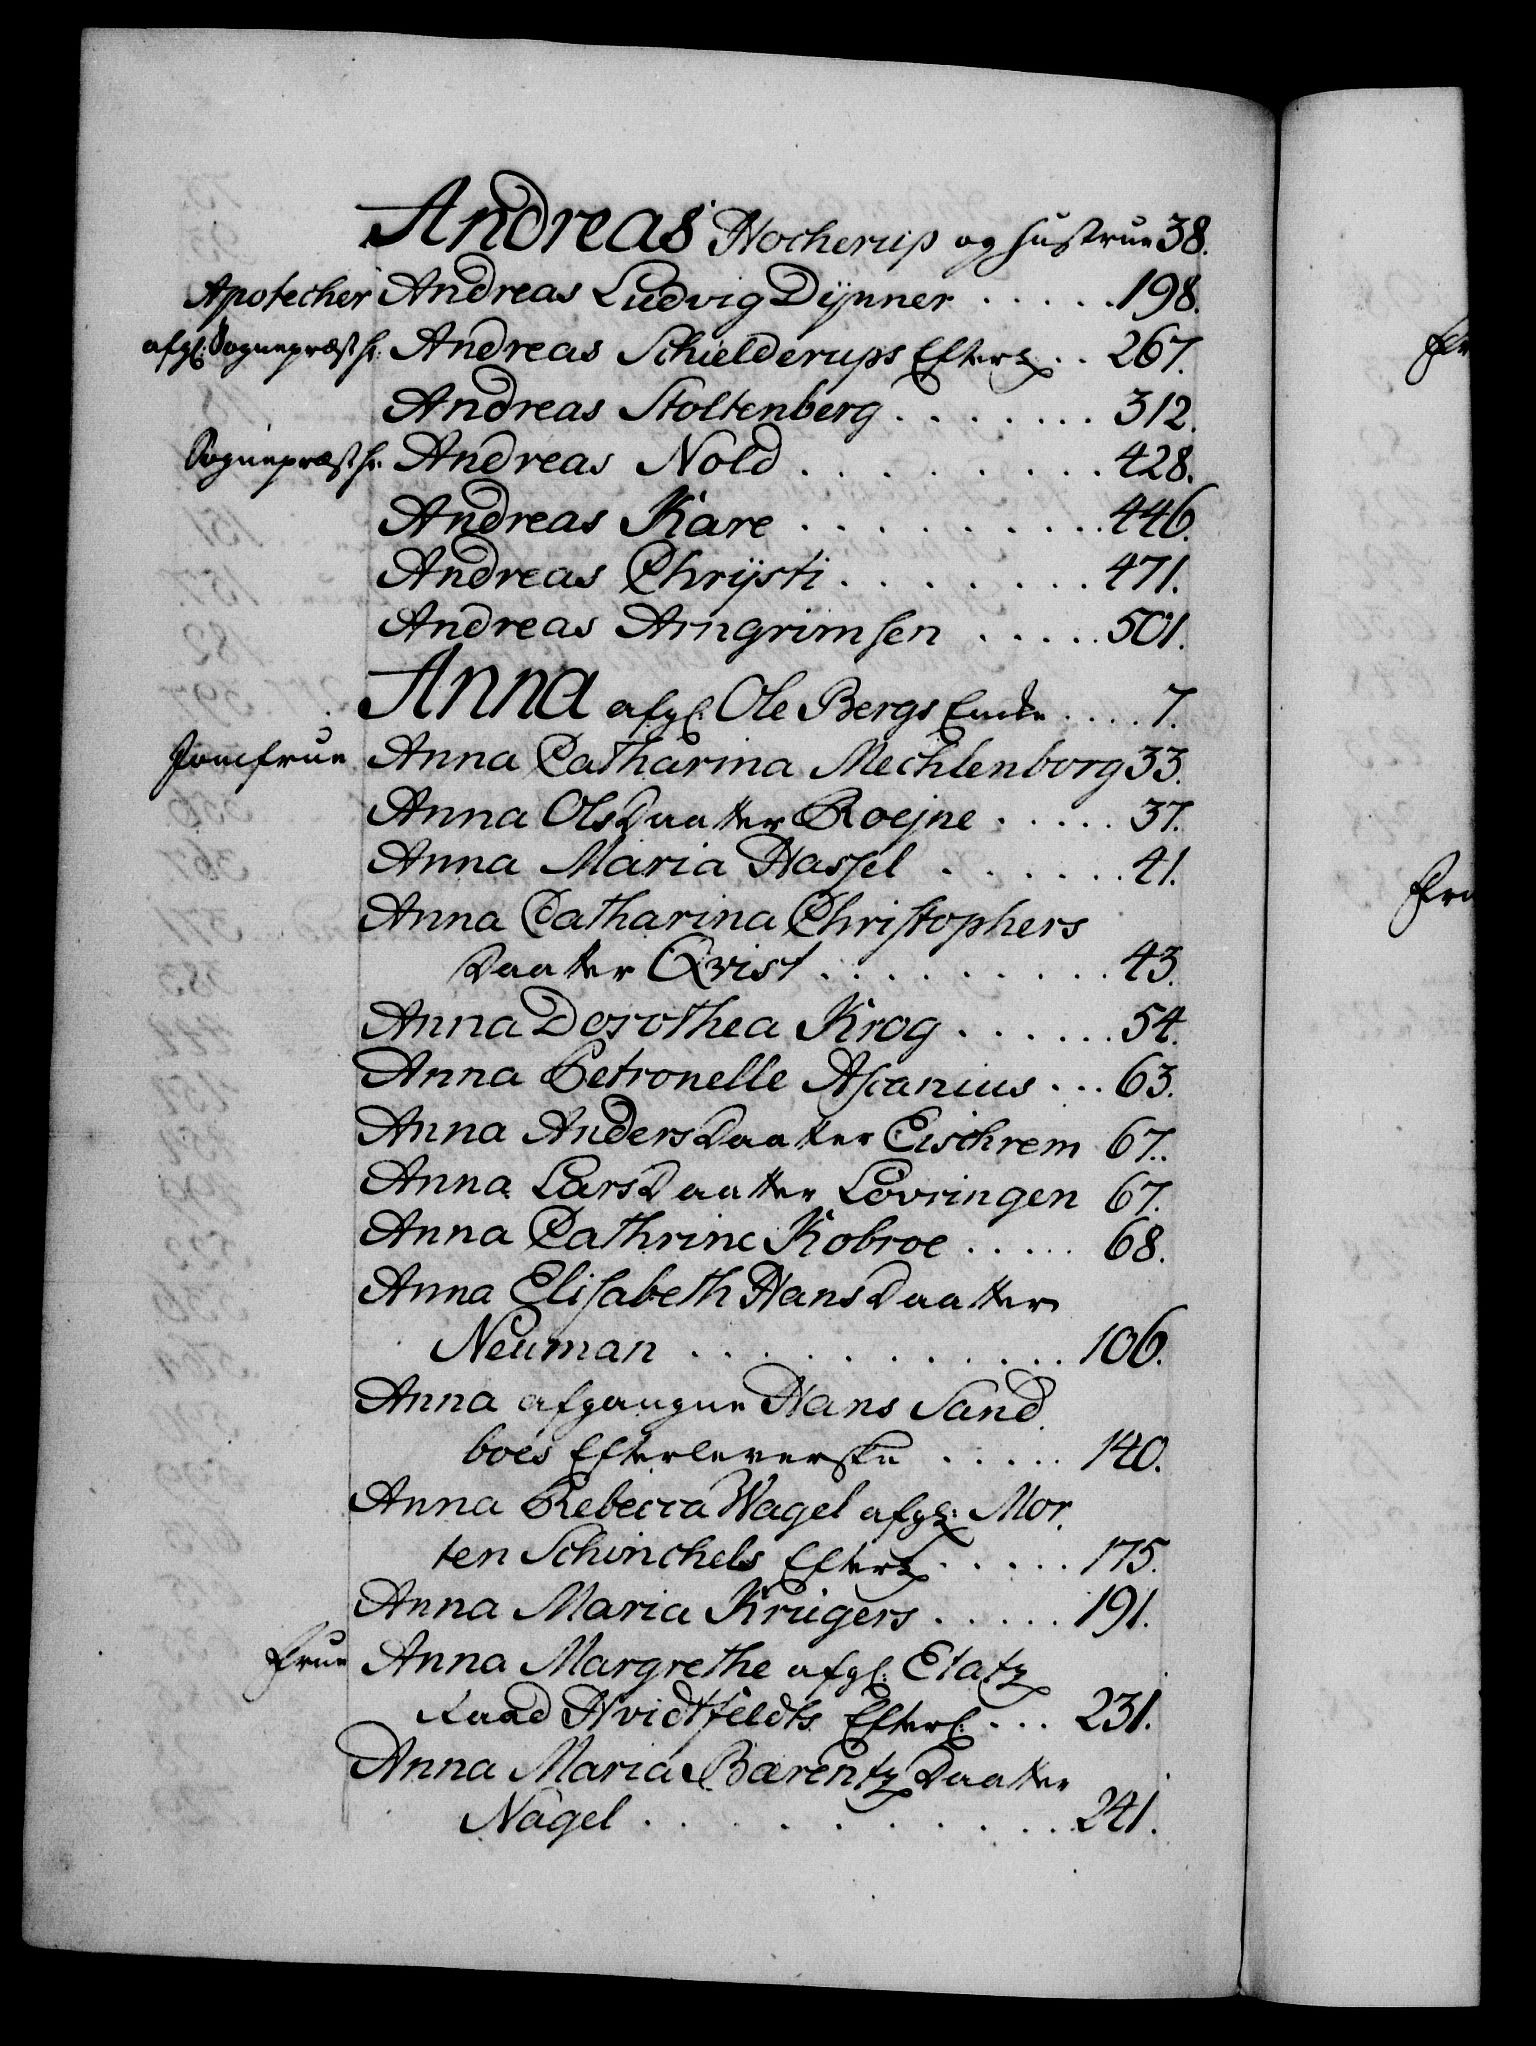 Andreas Hocherup og Hustrue 38.
Apotecher Andreas Ludvig Dÿnner . . . . . 198.
afgl: Sognepræst Hr. Andreas Schielderups Efterl. . . 267.
Andreas Stoltenberg . . . . . . . 312.
Sognepræst Hr. Andreas Nold . . . . . . . . 428.
Andreas Kare . . . . . . . . . 446.
Andreas Chrÿsti . . . . . . . . 471.
Andreas Arngrimsen . . . . . 501.
Anna afgl: Ole Bergs Encke . . . . 7.
Jomfrue Anna Catharina Mechlenborg 33.
Anna Olsdaatter Roejne . . . . . 37.
Anna Maria Hassel . . . . . . . 41.
Anna Catharina Christophers
daatter Qvist . . . . . . . . . 43.
Anna Dorothea Krog . . . . . . 54.
Anna Petronelle Ascanius . . . 63.
Anna Andersdaatter Eischrem 67.
Anna Larsdaatter Lovringen 67.
Anna Cathrine Kobroe . . . . . 68.
Anna Elisabeth Hansdaatter
Neuman . . . . . . . . . . . . 106.
Anna afgangne Hans Sand
boes Efterleverske . . . . . 140.
Anna Rebecca Wagel afgl: Mor
ten Schinchels Efterl. . . . . . 175.
Anna Maria Krügers . . . . . 191.
Frue Anna Margrethe afgl: Etatz
Raad Hvidtfeldts Efterl: . . . 231.
Anna Maria Bærentz daatter
Nagel . . . . . . . . . . . 241.
Fr
Fru